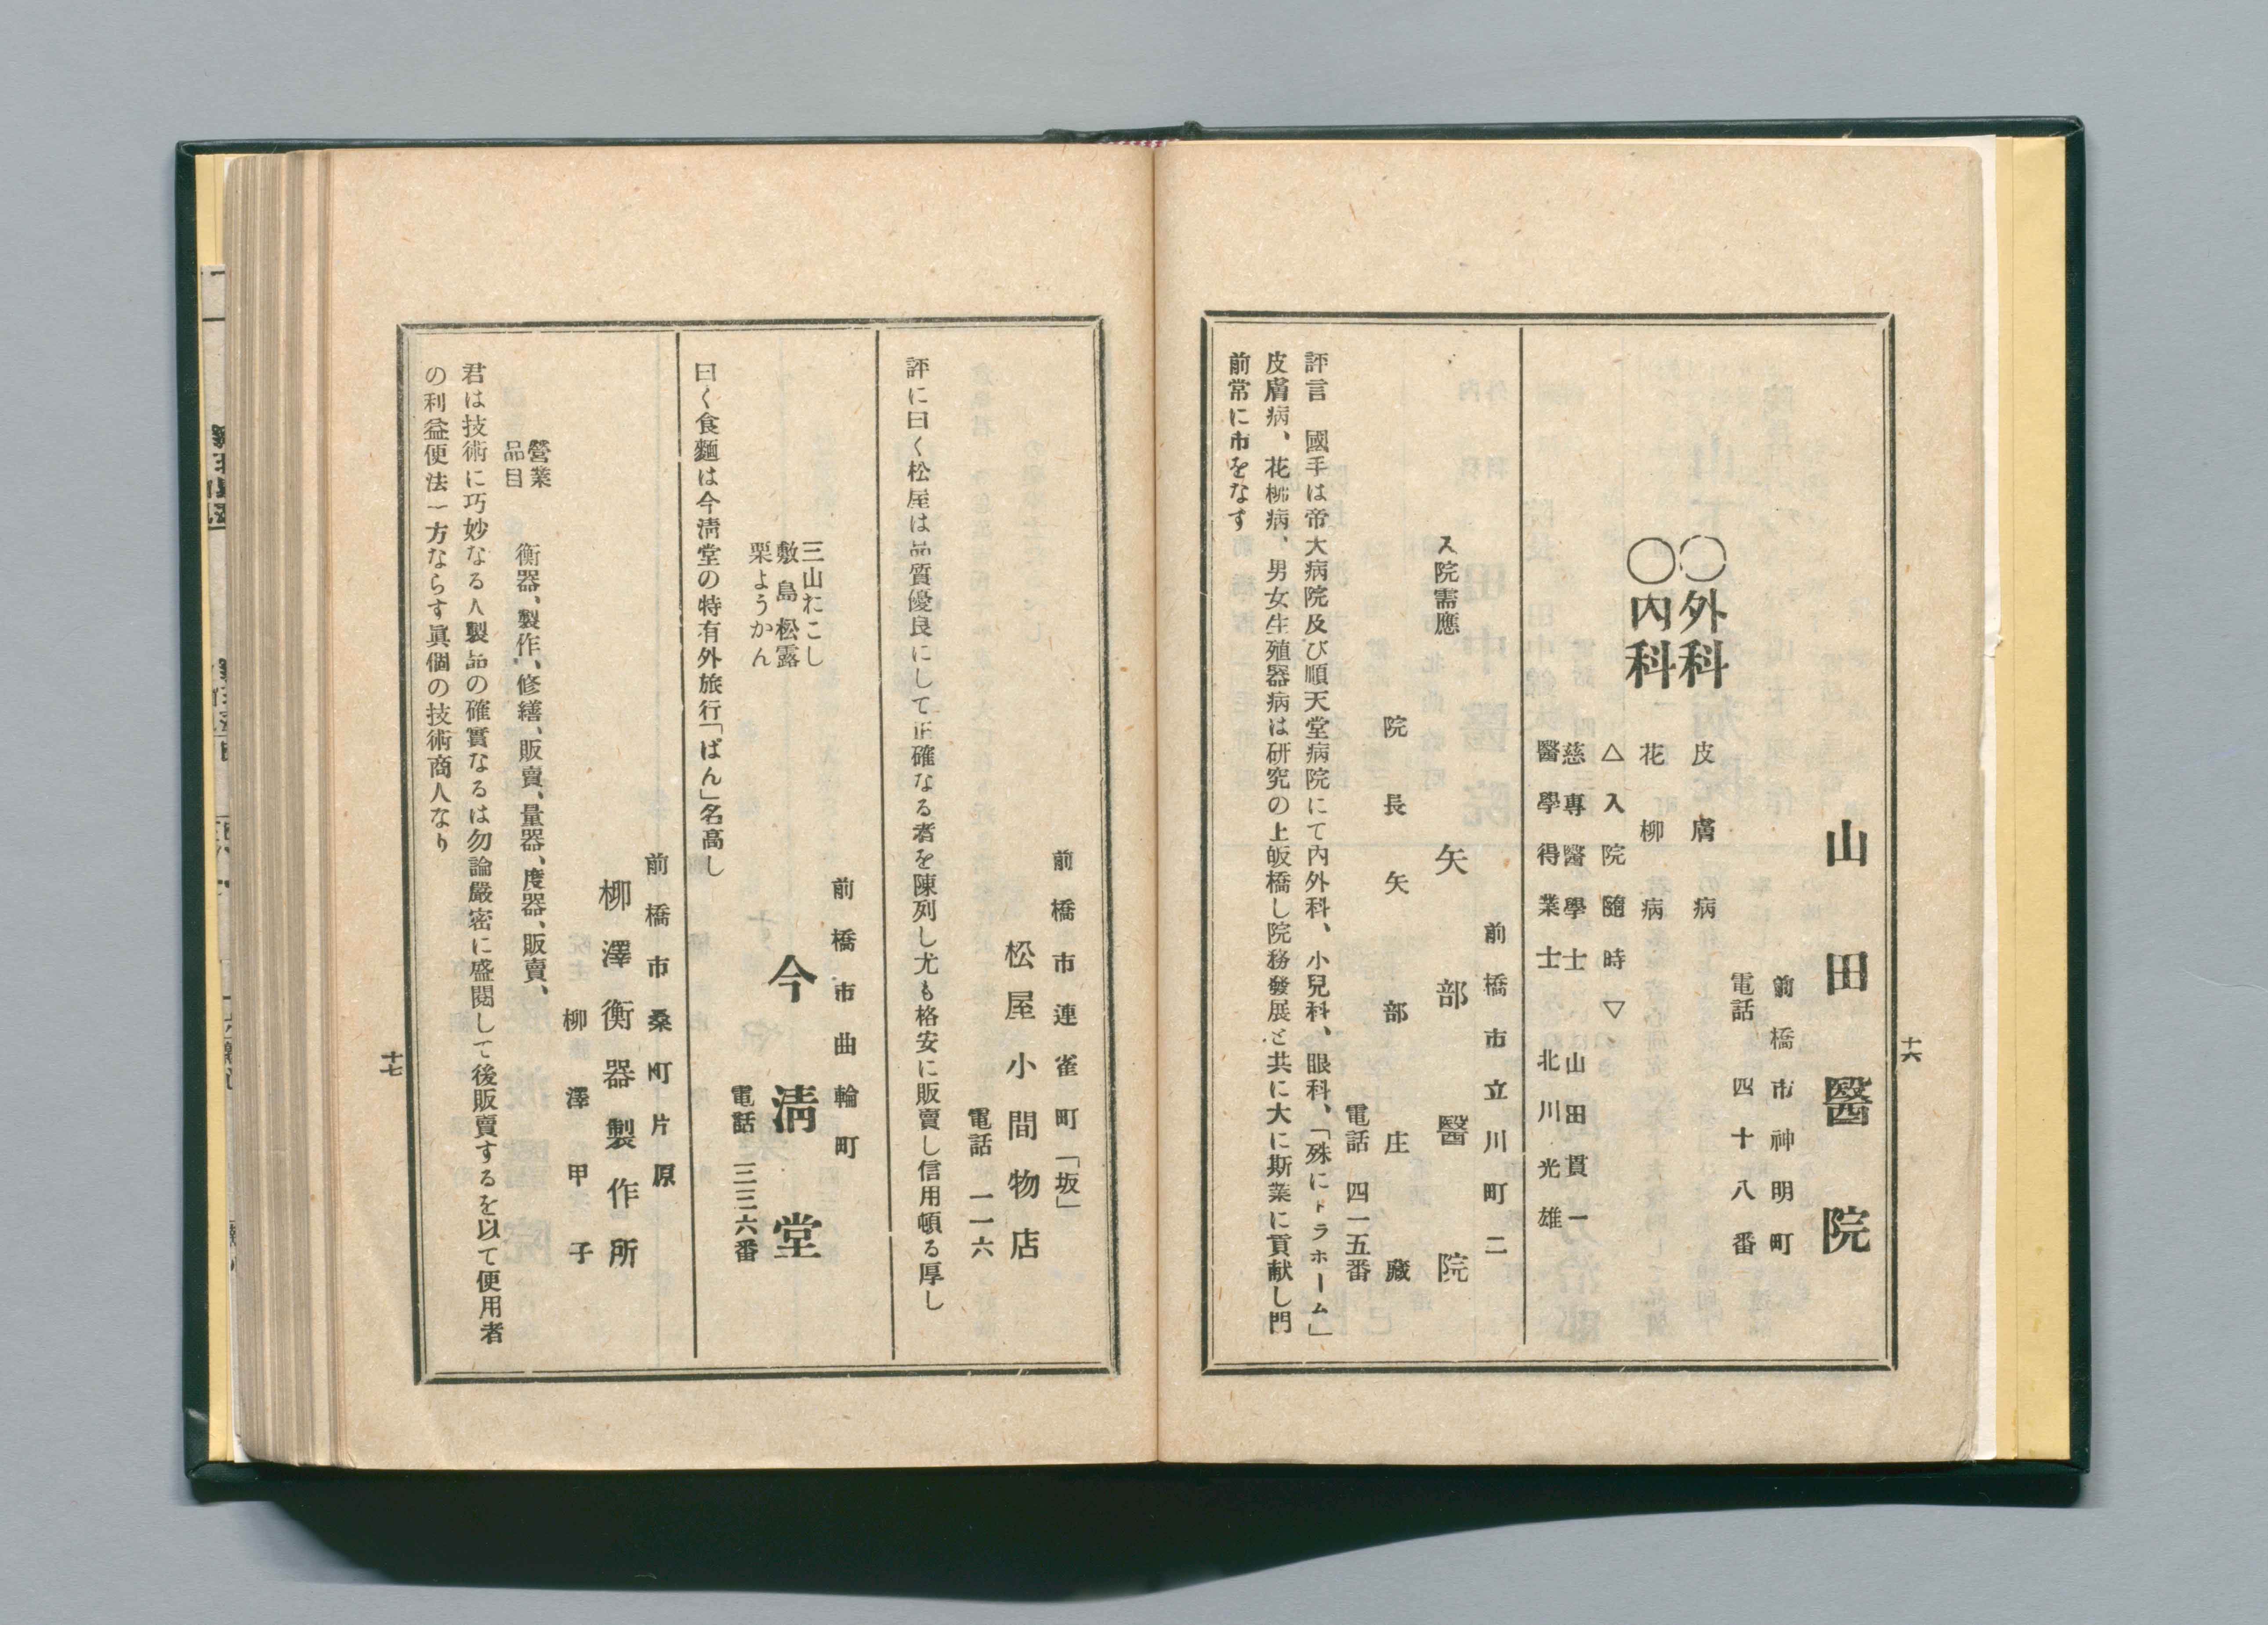 十六
山田醫院
前橋市神明町
電話　四十八番
〇外科
皮膚病
〇內科
花柳病
△入院隨時▽
慈專醫學士　山田貫一
醫學得業士　北川光雄
前橋市立川町二
矢部醫院
入院需應
院長　矢部庄藏
電話　四一五番
評言　國手は帝大病院及び順天堂病院にて內外科、小兒科、眼科、「殊にトラホーム」
皮膚病、花柳病、男女生殖器病は研究の上皈橋し院務發展と共に大に斯業に貢献し門
前常に市をなす
前橋市連雀町「坂」
松屋小間物店
電話　一一六
評に曰く松屋は品質優良にして正確なる者を陳列し尤も格安に販賣し信用頓る厚し
前橋市曲輪町
今淸堂
電話　三三六番
三山おこし
敷島松露
栗ようかん
曰く食麵は今淸堂の特有外旅行「ぱん」名高し
前橋市桑町片原
柳澤衡器製作所
柳澤甲子
營業
品目
衡器、製作、修繕、販賣、量器、度器、販賣、
君は技術に巧妙なる人製品の確實なるは勿論嚴密に盛閱して後販賣するを以て便用者
の利益便法一方ならす眞個の技術商人なり
十七